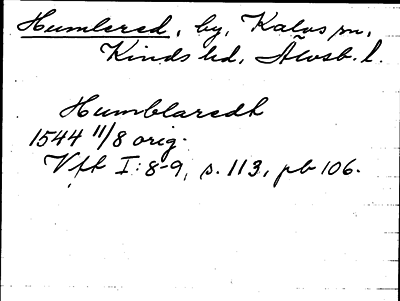 Humlered, by, Kalvs sn,
Kinds hd, Älvsb. l.
Humblaredh
1544 11/8 orig.
Vft I: 8-9, s. 113, pb 106.